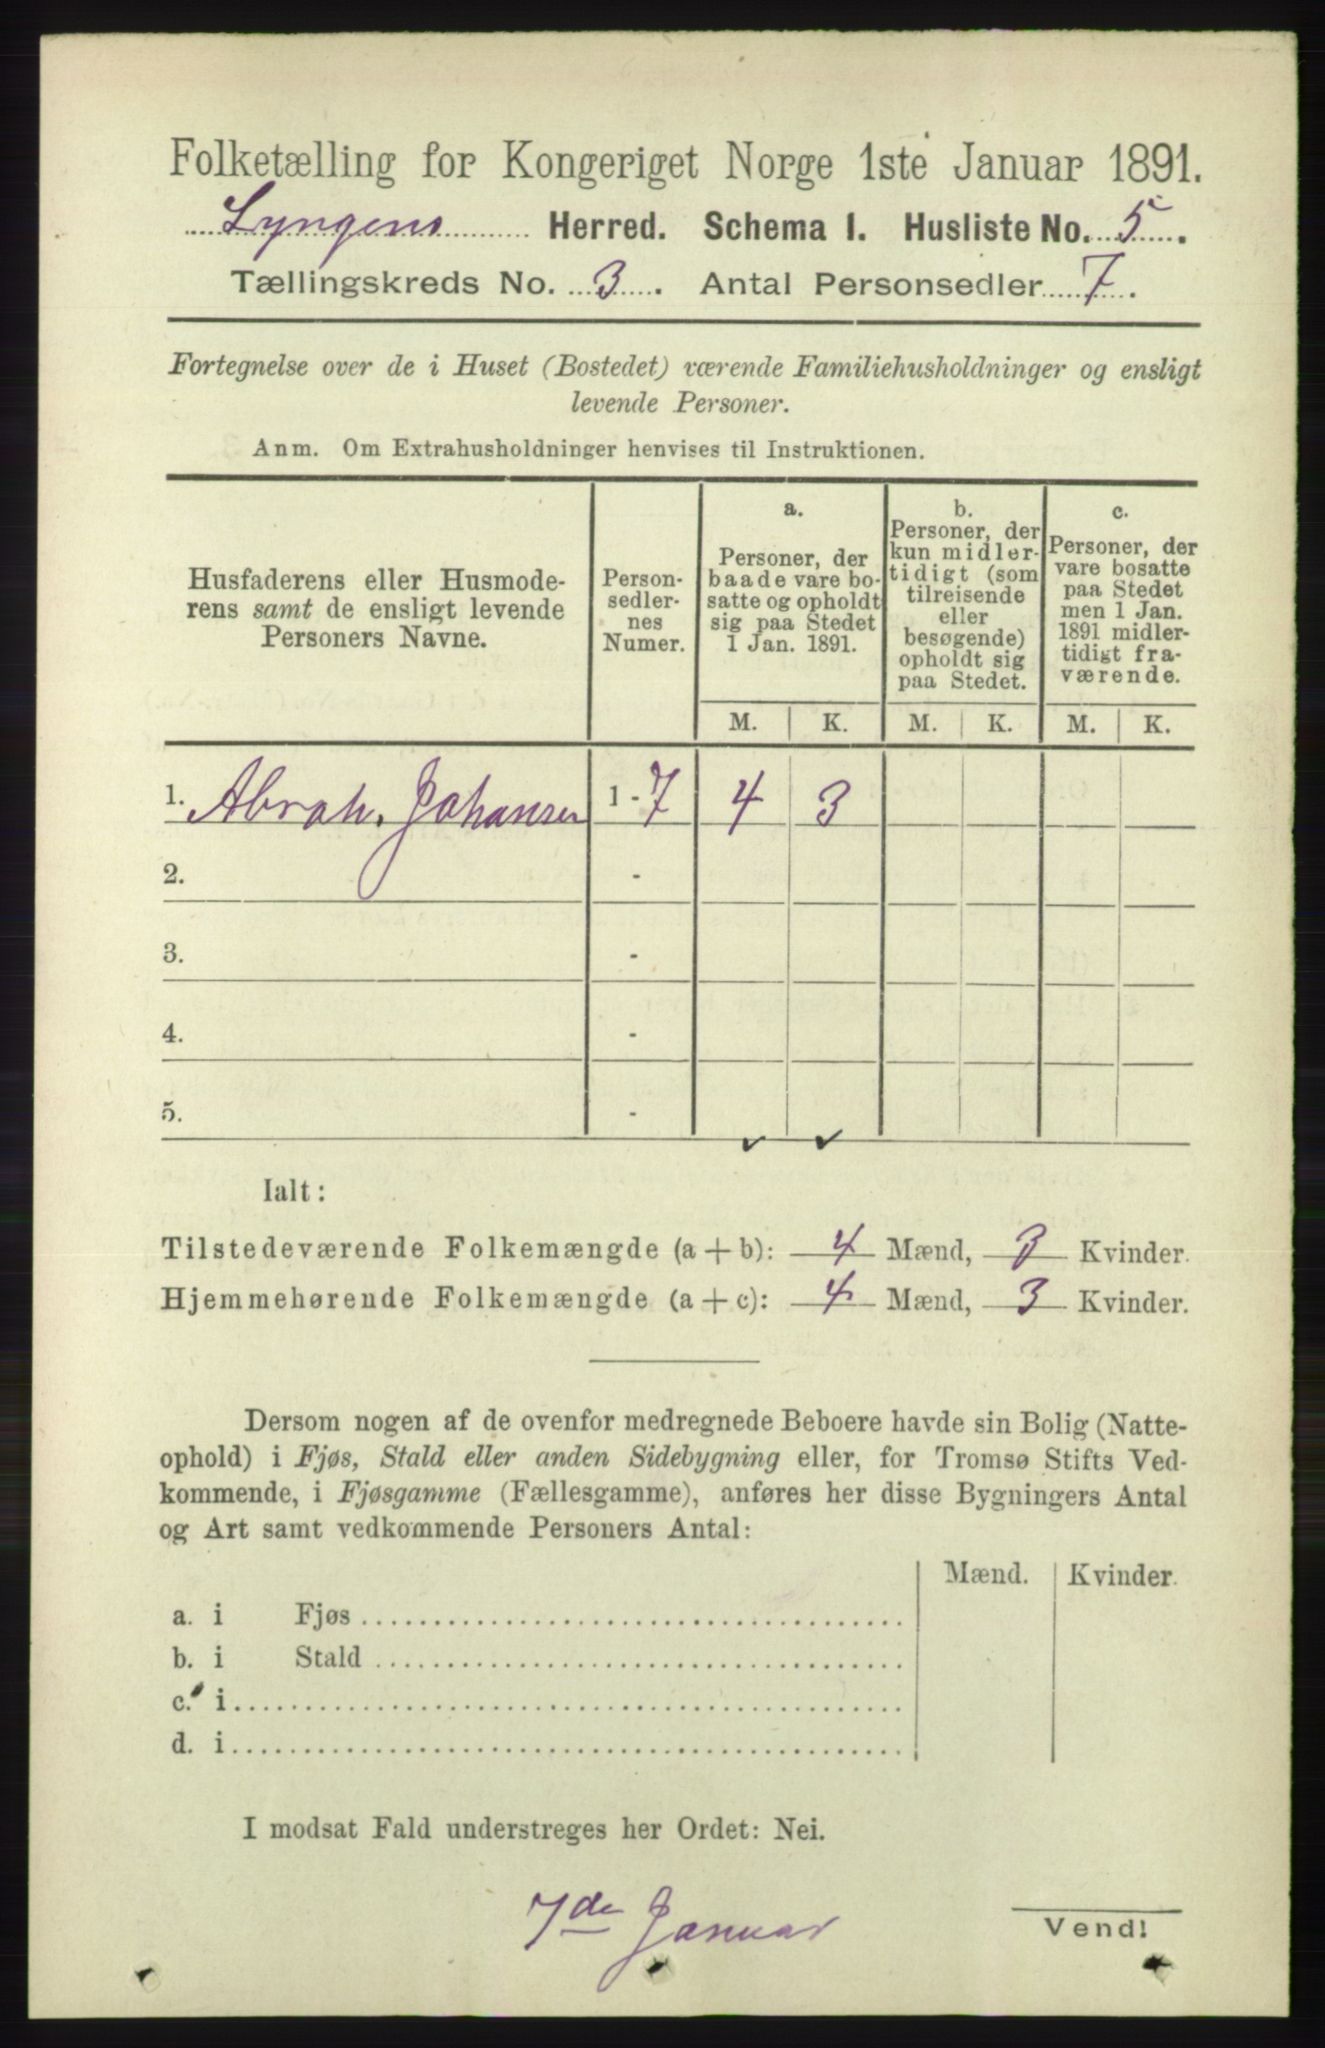 Folketælling for Kongeriget Norge 1ste Januar 1891.
Lyngens Herred. Schema I. Husliste No. 5.
Tællingskreds No. 3. Antal Personsedler 7.
Fortegnelse over de i Huset (Bostedet) værende Familiehusholdninger og ensligt
levende Personer.
Anm. Om Extrahusholdninger henvises til Instruktionen.
Husfaderens eller Husmode-
rens samt de ensligt levende
Personers Navne.
Person-
sedler-
nes
Numer.
a.
Personer, der
baade vare bo-
satte og opholdt
sig paa Stedet
1 Jan. 1891.
b.
Personer, der
kun midler-
tidigt (som
tilreisende
eller
besøgende)
opholdt sig
paa Stedet.
c.
Personer, der
vare bosatte
paa Stedet
men 1 Jan.
1891 midler-
tidigt fra-
værende.
M. K. M. K. M. K.
1. Abrah. Johansen 1 - 7 4 3
2. -
3. -
4. -
5. -
Ialt:
Tilstedeværende Folkemængde (a + b): 4 Mænd, 3 Kvinder.
Hjemmehørende Folkemængde (a + c): 4 Mænd, 3 Kvinder.
Dersom nogen af de ovenfor medregnede Beboere havde sin Bolig (Natte-
ophold) i Fjøs, Stald eller anden Sidebygning eller, for Tromsø Stifts Ved-
kommende, i Fjøsgamme (Fællesgamme), anføres her disse Bygningers Antal
og Art samt vedkommende Personers Antal:
Mænd. Kvinder.
a. i Fjøs
b. i Stald
c. i
d. i
I modsat Fald understreges her Ordet: Nei.
7de Januar
Vend!